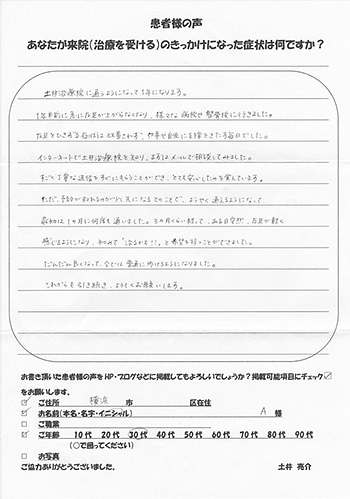 患者様の声
あなたが来院(治療を受ける)のきっかけになった症状は何ですか?
土井治療院に通うようになって1年になります。
1年半前に急に左足が上がらなくなり、様々な病院や整骨院に行きました。
左足をひきずる症状は改善されず、仕事や家庭にも支障をきたす毎日でした。
インターネットで土井治療院を知り、まずはメールで相談してみました。
すごく丁寧な返信をすぐにもらうことができ、とても安心したのを覚えています。
ただ、予約が取れるのが1ヶ月先になるとのことで、ようやく通えるようになって、
最初は1ヵ月に何度も通いました。3ヵ月くらい経って、ある日突然、左足が軽く
感じるようになり、初めて"治るかも!!"と希望を持つことができました。
だんだん良くなって、今では普通に歩けるようになりました。
これからも引き続き、よろしくお願いします。
お書き頂いた患者様の声をHP・ブログなどに掲載してもよろしいでしょうか?掲載可能項目にチェック☑
をお願いします。
☑ ご住所 横浜 市 区在住
☑ お名前(本名・名字・イニシャル) A 様
□ ご職業
☑ ご年齢 10代 20代 30代 40代 50代 60代 70代 80代 90代
(○で囲ってください)
□ お写真
ご協力ありがとうございました。 土井 亮介